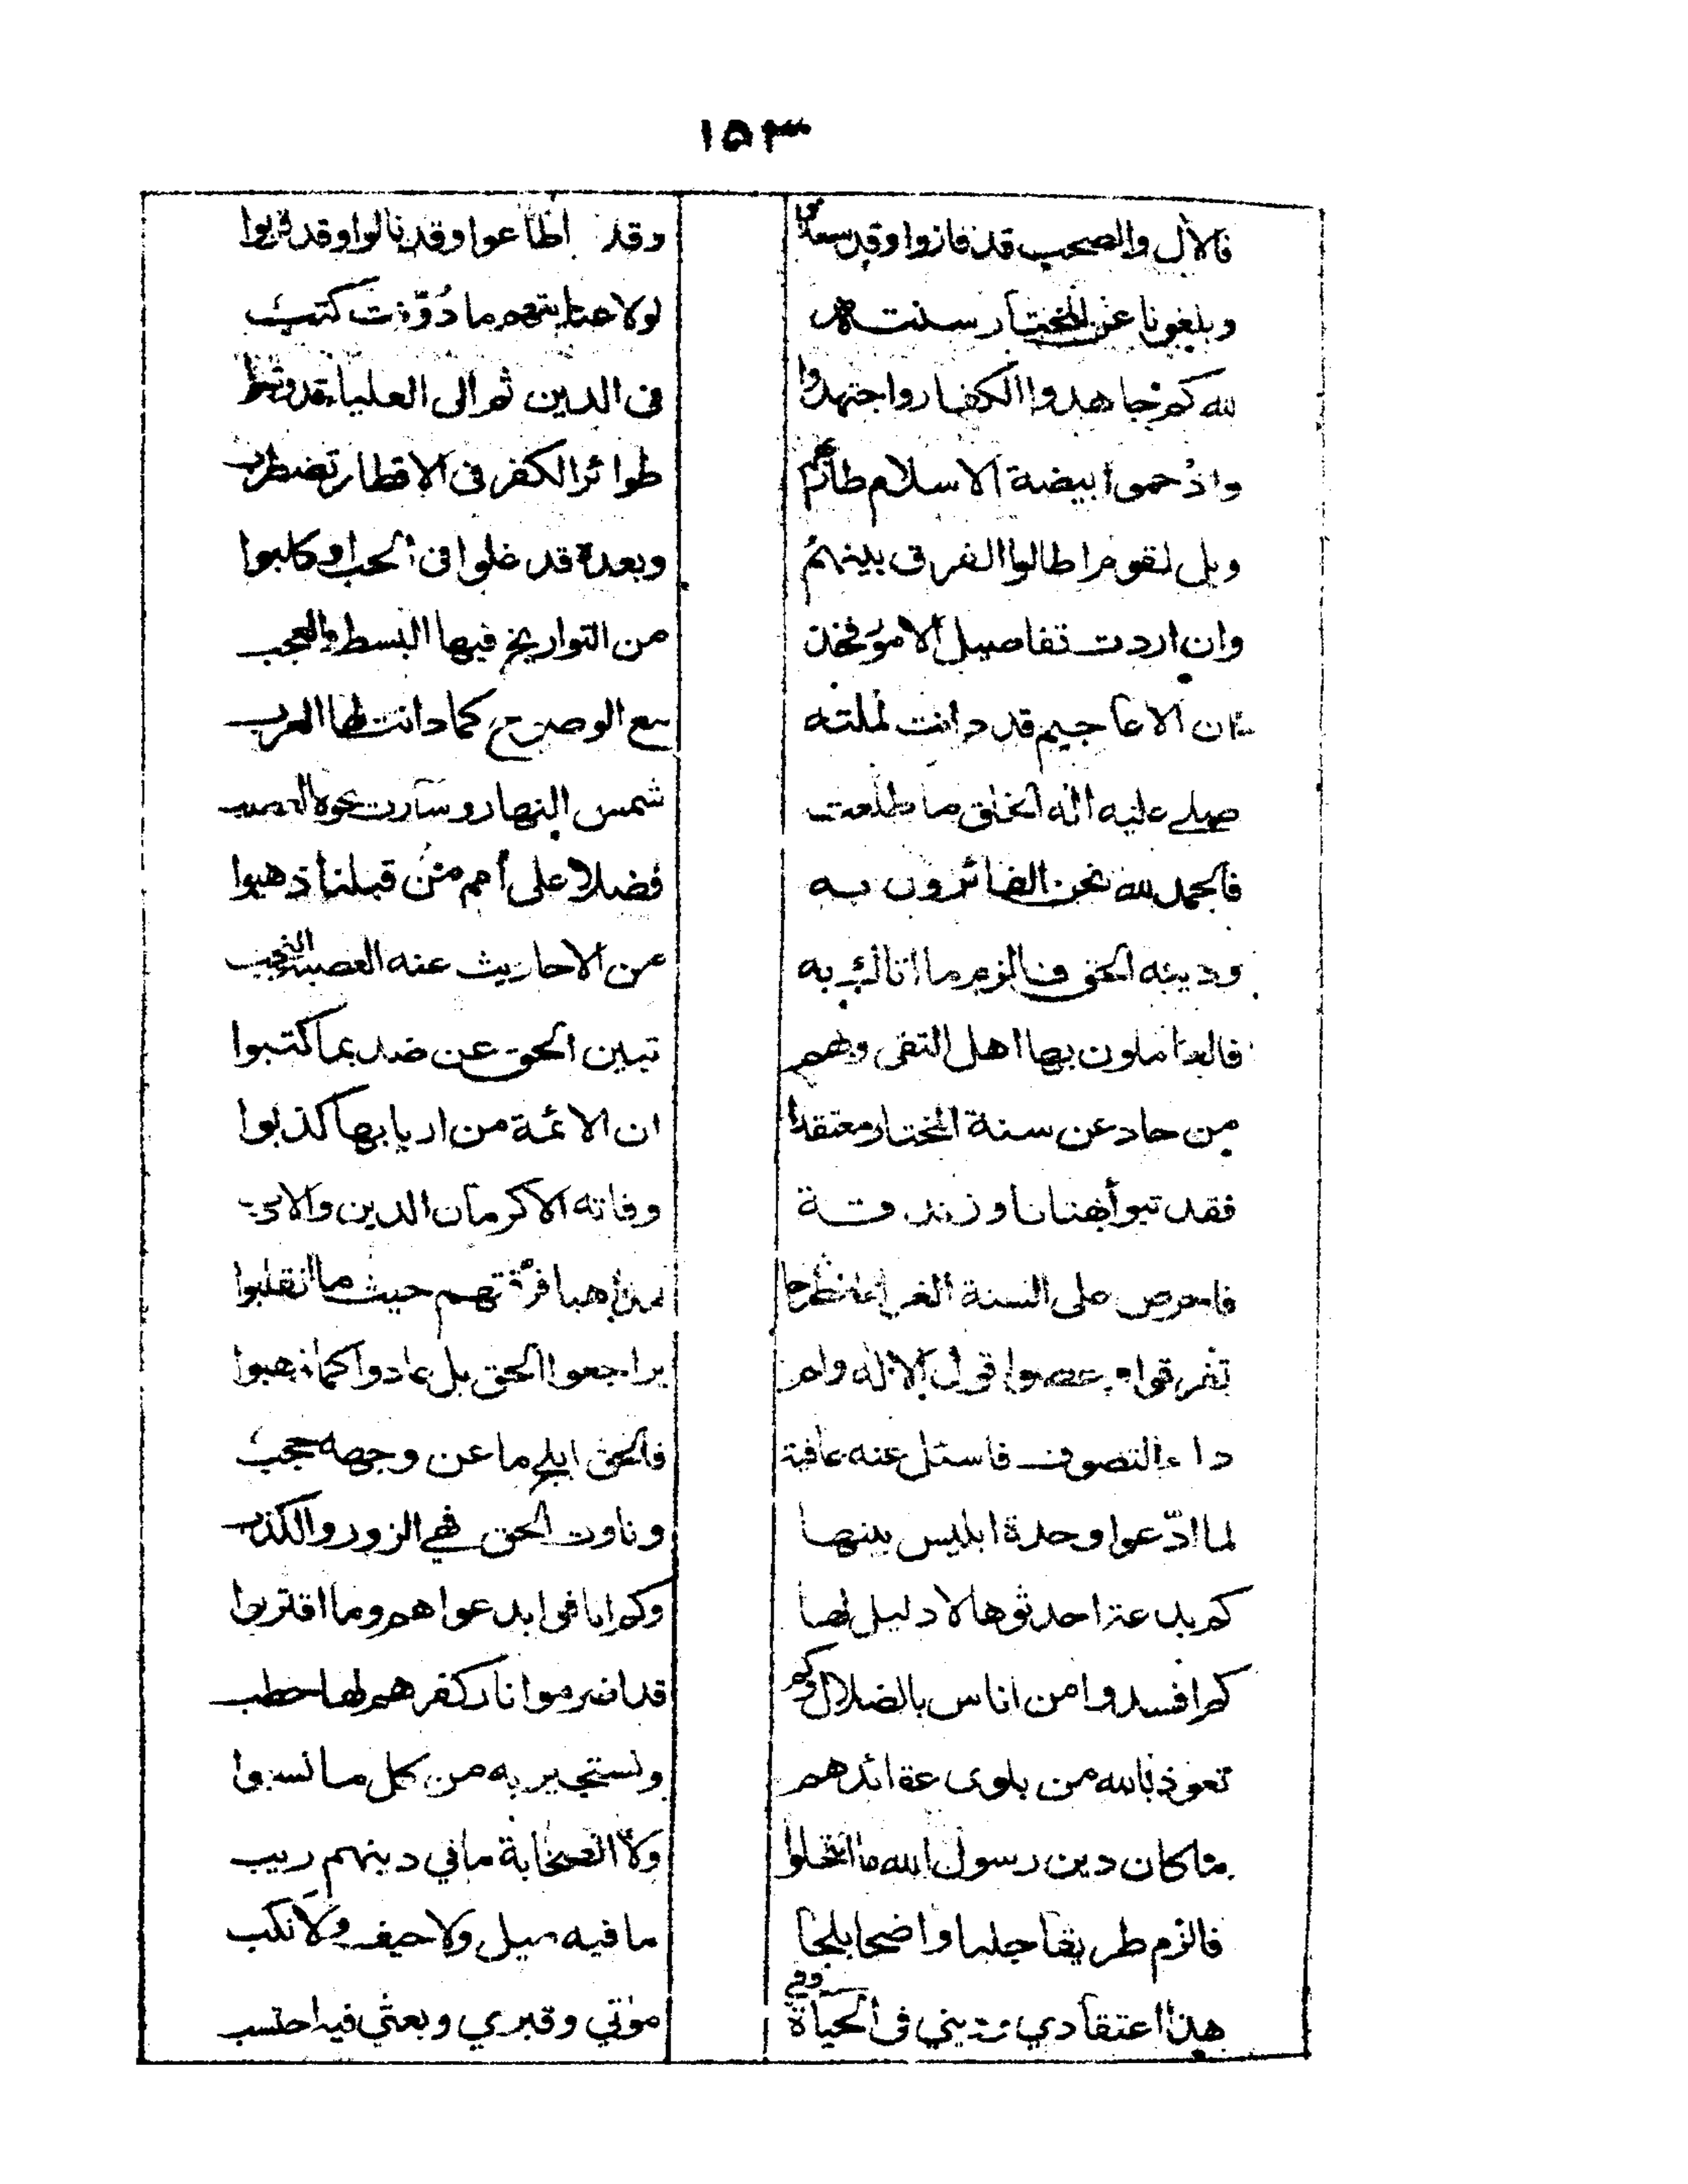 ١٥٣
فالآل والصحب قد فازوا وقد سعدوا وقد اطاعوا وقد نالوا وقد قربوا
وبلغونا عن المختار سنته لولا عنايتهم ما دُوّنت كتب
لله كم جاهدوا الكفار واجتهدوا فى الدين ثم الى العليا
واذ حموا بيضة الاسلام طائرهم طوائر الكفر فى الاقطار تضطرب
ويل لقوم اطالوا الفرق بينهم وبعده قد غلوا فى الحب وكلبوا
وان اردت تفاصيل الامور فخذ من التواريخ فيها البسط والعجب
ان الاعاجيم قد دانت لملته مع الوضوح كما دانت لها العرب
صلى عليه اله الخلق ما طلعت شمس النهار وسارت نحوه
فالحمد لله نحن الفائزون به فضلا على أمم من قبلنا ذهبوا
ودينه الحق فالزم ما اتاك به من الاحاديث عنه العصبة النجب
فالعاملون بها اهل التقى وهم تبين الحق عن ضد بما كتبوا
من حاد عن سنة المختار معتقدا ان الائمة من اربابها كذبوا
فقد تبوأ بهتانا وزندقة وفاته الاكرمان الدين والادب
فاحرص على السنة الغرا مذاهبا فرقتهم حيث ما انقلبوا
تفرقوا وعصوا قول الاله ولم يراجعوا الحق بل عادوا كما ذهبوا
داء التصوف فاسئل عنه عافية فالحق ابلج ما عن وجهه حجب
لما ادّعوا وحدة ابليس بينها وناوت الحق فهى الزور والكذب
كم بدعة احدثوها لا دليل لها وكم اناس ابدعواهم وما اقتربوا
كم افسدوا من اناس بالضلال وكم قد اضرموا نار كفر هم لها حطب
نعوذ بالله من بلوى عقائدهم ونستجير به من كل ما نسبوا
ما كان دين رسول الله ما انتحلوا ولا الصحابة ما في دينهم ريب
فالزم طريقا جليا واضحا بلجا ما فيه ميل ولا حيف ولا نكب
هذا اعتقادي وديني فى الحياة وفي موتي وقبري وبعثي فيه احتسب